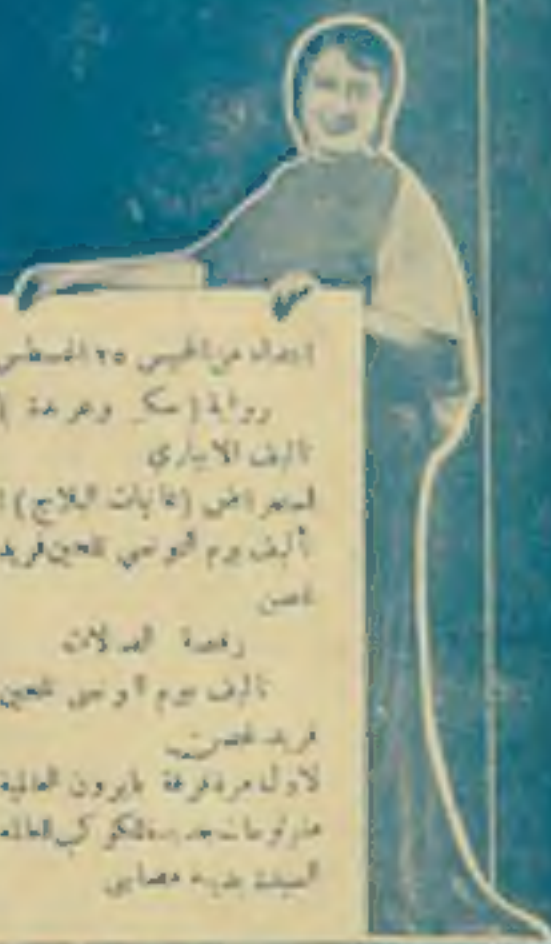 ابتداء من الخميس ٢٥ اغسطس
رواية ( سكر وعربدة )
تأليف الابياري
استعراض (غانيات البلاج)
تأليف بيرم التونسي تلحين فريد
غصن
رقصة
تأليف بيرم التونسي تلحين
فريد غصن
لاول مرة فرقة بايرون العالمية
منولوجات جديدة لكوكب العالم
السيدة بديعه مصابني